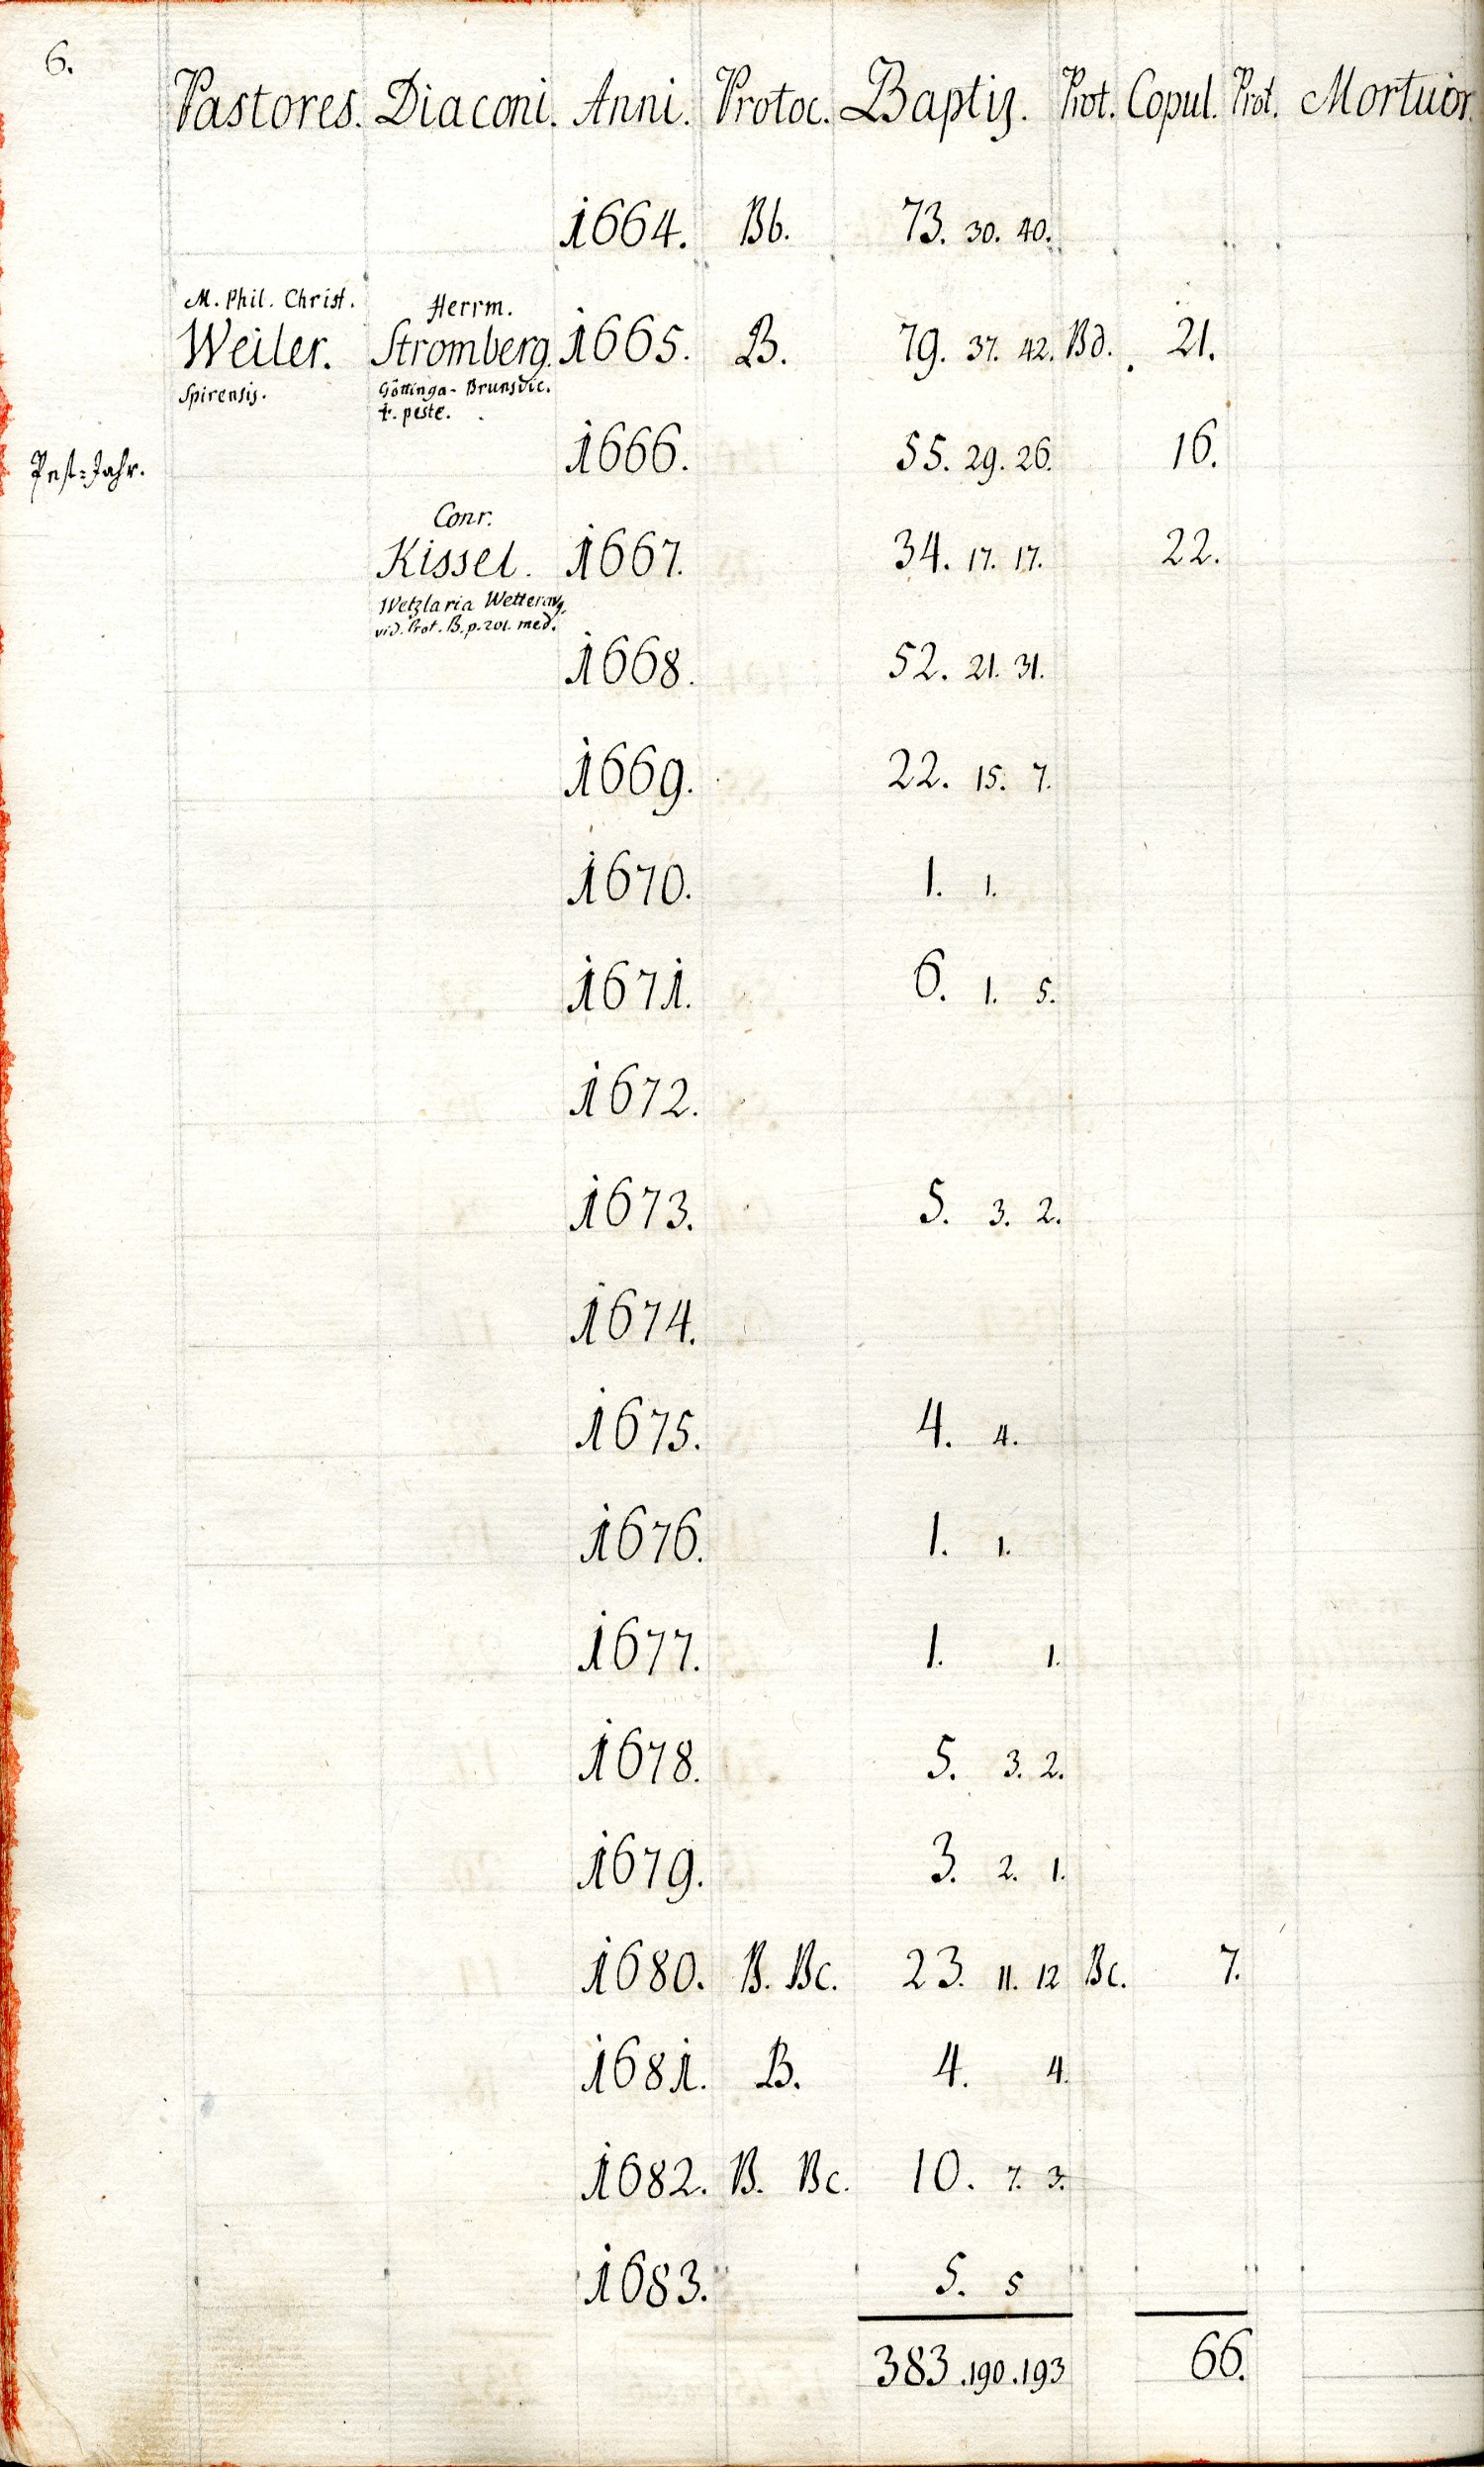 6.
Pastores. Diaconi. Anni. Protoc. Baptiz. Prot. Copul. Prot. Mortuor.
1664. Bb. 73. 30. 40.
M. Phil. Christ. Herrm.
Weiler. Stromberg. 1665. B. 79. 37. 42. Bd. 21.
Spirensis. Göttinga-Brunsvic.
†. peste.
Pest-Jahr. 1666. 55. 29. 26. 16.
Conr.
Kissel. 1667. 34. 17. 17. 22.
Wetzlaria Wetterav.
vid. Prot. B. p. 201. med.
1668. 52. 21. 31.
1669. 22. 15. 7.
1670. 1. 1.
1671. 6. 1. 5.
1672.
1673. 5. 3. 2.
1674.
1675. 4. 4.
1676. 1. 1.
1677. 1. 1.
1678. 5. 3. 2.
1679. 3. 2. 1.
1680. B. Bc. 23. 11. 12 Bc. 7.
1681. B. 4. 4.
1682. B. Bc. 10. 7. 3.
1683. 5. 5
383. 190. 193 66.